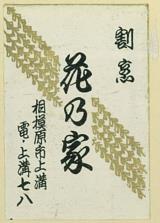 割烹
花乃家
相模原市上溝
電・上溝七八